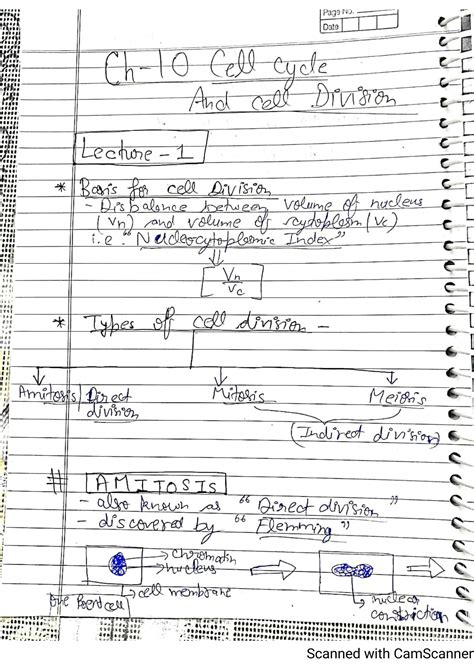 Page No.
Date
Ch-10 Cell cycle
And cell Division
Lecture - 1
* Basis for cell Division
- Disbalance between volume of nucleus
(Vn) and volume of cytoplasm (Vc)
i.e "Nucleocytoplasmic Index"
Vn
Vc
* Types of cell division -
Amitosis/Direct division
Mitosis
Meiosis
(Indirect division)
# AMITOSIS
- also known as "Direct division"
- discovered by "Flemming"
chromatin
nucleus
cell membrane
cell
nuclear
constriction
Scanned with CamScanner